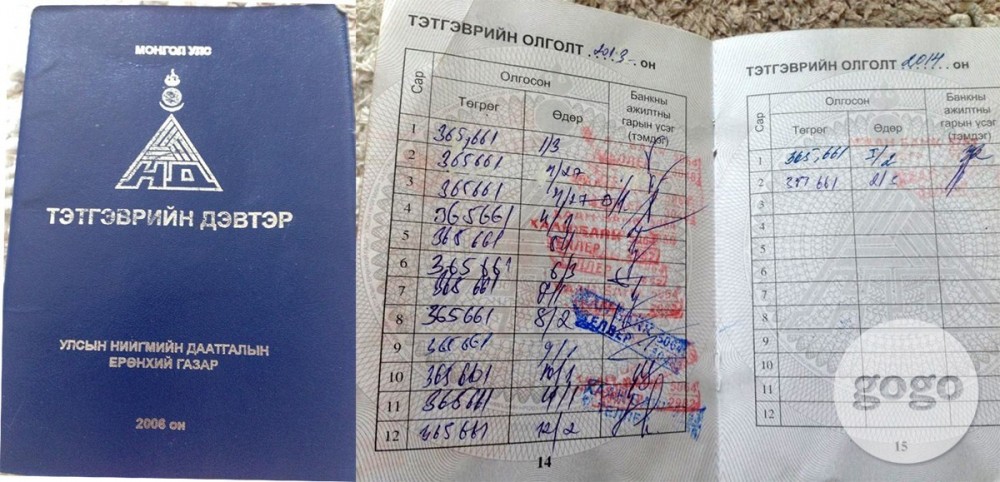 МОНГОЛ УЛС
НД
ТЭТГЭВРИЙН ДЭВТЭР
УЛСЫН НИЙГМИЙН ДААТГАЛЫН
ЕРӨНХИЙ ГАЗАР
2006 он
ТЭТГЭВРИЙН ОЛГОЛТ 2013 он
Сар
Олгосон
Банкны ажилтны гарын үсэг (тэмдэг)
Төгрөг Өдөр
1 365,661 1/3
2 365661
3 365661
4 365661
5 365661
6 365661 6/3
7 365661
8 365661 8/2
9 365661 9/1
10 365661 10/1
11 365661 11/1
12 365661 12/2
14
ТЭТГЭВРИЙН ОЛГОЛТ 2014 он
Сар
Олгосон
Банкны ажилтны гарын үсэг (тэмдэг)
Төгрөг Өдөр
1 365,661
2
3
4
5
6
7
8
9
10
11
12
gogo
15